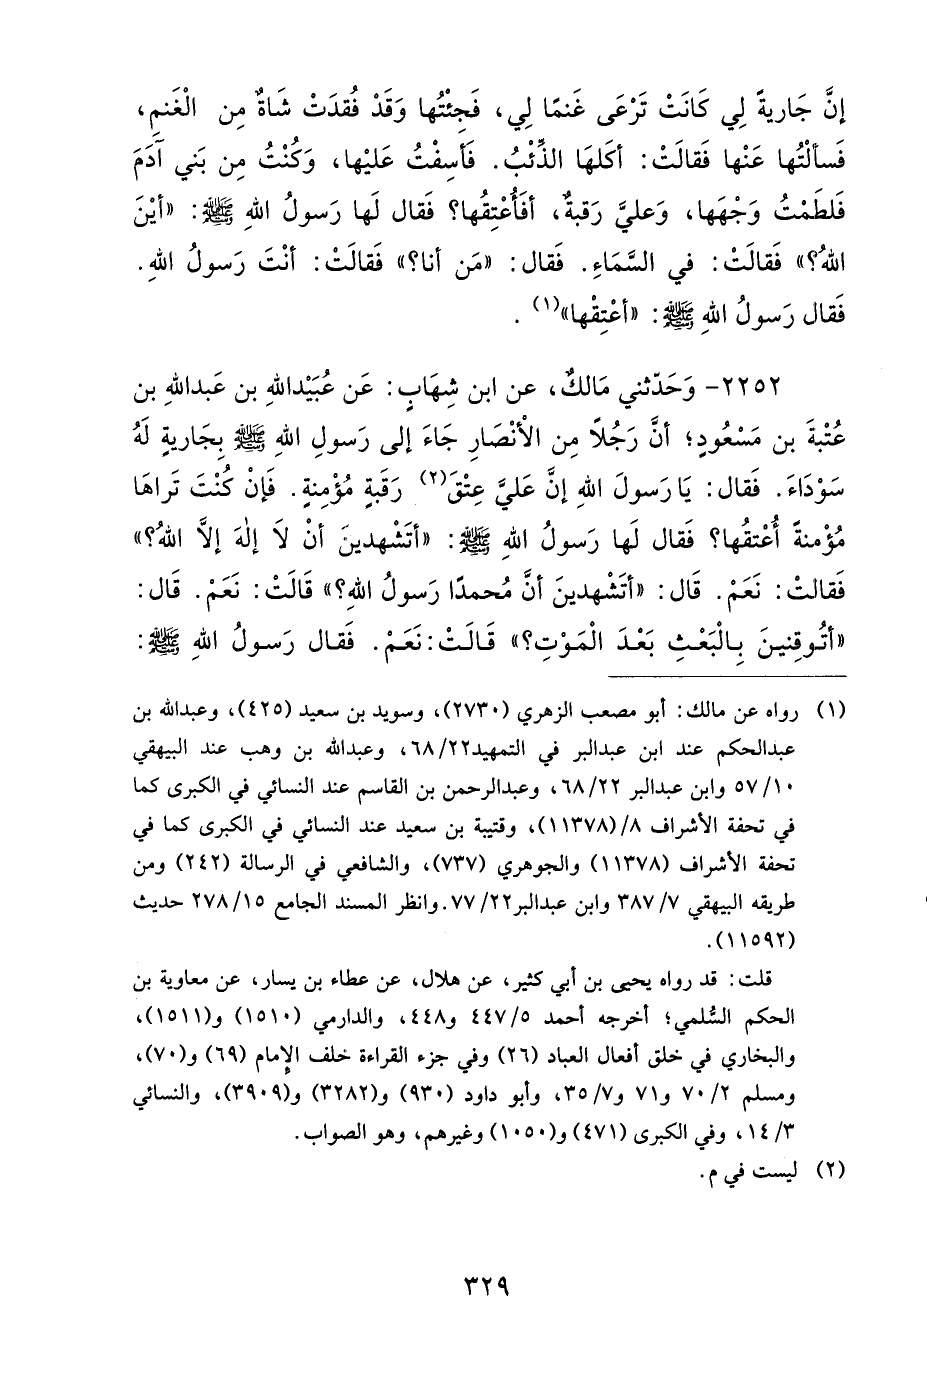 إنَّ جَاريةً لِي كَانَتْ تَرْعَى غَنمًا لِي، فَجِئْتُها وَقَدْ فُقدَتْ شَاةٌ مِن الْغَنمِ،
فَسألْتُها عَنْها فَقالَتْ: أكلهَا الذِّئْبُ. فَأسِفْتُ عَليْها، وَكُنْتُ مِن بَني آدَمَ
فَلطَمْتُ وَجْهَها، وَعليَّ رَقبةٌ، أفَأُعْتِقُها؟ فَقال لَها رَسولُ اللهِ ﷺ: «أيْنَ
اللهُ؟» فَقالَتْ: في السَّمَاءِ. فَقال: «مَن أنا؟» فَقالَتْ: أنْتَ رَسولُ اللهِ.
فَقال رَسولُ اللهِ ﷺ: «أعْتِقْها»(١) .
٢٢٥٢- وَحَدّثني مَالكٌ، عن ابن شِهَابٍ: عَن عُبَيْدالله بن عَبدالله بن
عُتْبةَ بن مَسْعُودٍ؛ أنَّ رَجُلًا مِن الأنْصَارِ جَاءَ إلى رَسولِ اللهِ ﷺ بِجَاريةٍ لَهُ
سَوْدَاءَ. فَقال: يَا رَسولَ اللهِ إنَّ عَليَّ عِتْقَ(٢) رَقبةٍ مُؤْمِنةٍ. فَإنْ كُنْتَ تَراهَا
مُؤْمنةً أُعْتقُها؟ فَقال لَها رَسولُ اللهِ ﷺ: «أتَشْهدينَ أنْ لَا إلٰهَ إلاَّ اللهُ؟»
فَقالتْ: نَعَمْ. قَال: «أتَشْهدينَ أنَّ مُحمدًا رَسولُ اللهِ؟» قَالَتْ: نَعَمْ. قَال:
«أتُوقِنينَ بِالْبَعْثِ بَعْدَ الْمَوْتِ؟» قَالَتْ: نَعَمْ. فَقال رَسولُ اللهِ ﷺ:
(١) رواه عن مالك: أبو مصعب الزهري (٢٧٣٠)، وسويد بن سعيد (٤٢٥)، وعبدالله بن
عبدالحكم عند ابن عبدالبر في التمهيد٦٨/٢٢، وعبدالله بن وهب عند البيهقي
٥٧/١٠ وابن عبدالبر ٦٨/٢٢، وعبدالرحمن بن القاسم عند النسائي في الكبرى كما
في تحفة الأشراف ٨/(١١٣٧٨)، وقتيبة بن سعيد عند النسائي في الكبرى كما في
تحفة الأشراف (١١٣٧٨) والجوهري (٧٣٧)، والشافعي في الرسالة (٢٤٢) ومن
طريقه البيهقي ٣٨٧/٧ وابن عبدالبر٧٧/٢٢. وانظر المسند الجامع ٢٧٨/١٥ حديث
(١١٥٩٢).
قلت: قد رواه يحيى بن أبي كثير، عن هلال، عن عطاء بن يسار، عن معاوية بن
الحكم السُّلمي؛ أخرجه أحمد ٤٤٧/٥ و٤٤٨، والدارمي (١٥١٠) و(١٥١١)،
والبخاري في خلق أفعال العباد (٢٦) وفي جزء القراءة خلف الإمام (٦٩) و(٧٠)،
ومسلم ٧٠/٢ و٧١ و٣٥/٧، وأبو داود (٩٣٠) و(٣٢٨٢) و(٣٩٠٩)، والنسائي
١٤/٣، وفي الكبرى (٤٧١) و(١٠٥٠) وغيرهم، وهو الصواب.
(٢) ليست في م.
٣٢٩